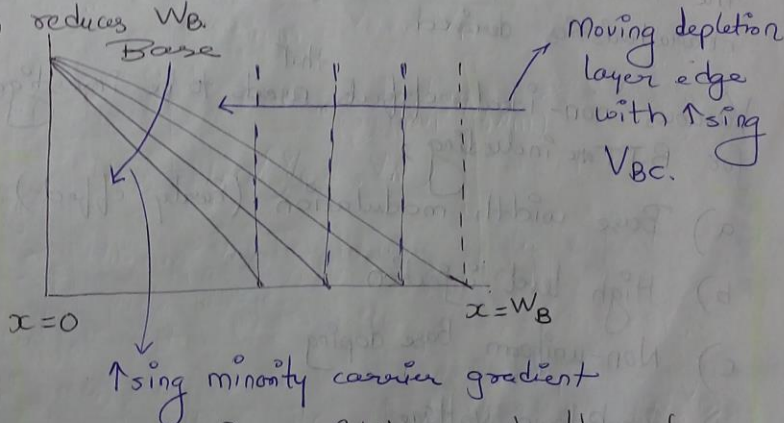 reduces WB.
Base
Moving depletion
layer edge
with ↑sing
VBC.
x=0
x=WB
↑sing minority carrier gradient